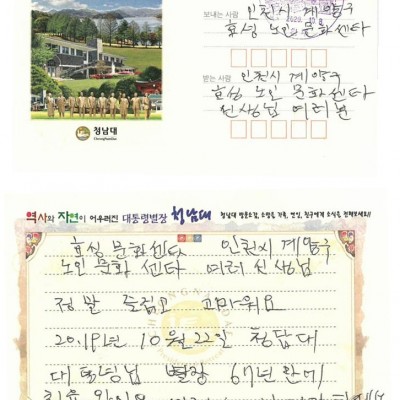 보내는 사람 인천시 계양구
효성 노인 문화 센타
받는 사람 인천시 계양구
효성 노인 문화 센타
선생님 여러분
청남대
Cheongnamdae
역사와 자연이 어우러진 대통령별장 청남대 청남대 방문소감, 소망을 가족, 연인, 친구에게 소식을 전해보세요!!
효성 문화센타 인천시 계양구
노인 문화 센타 여러 선생님
정말 즐겁고 고마워요
2019년 10월 22일 청남대
별장 67년만에